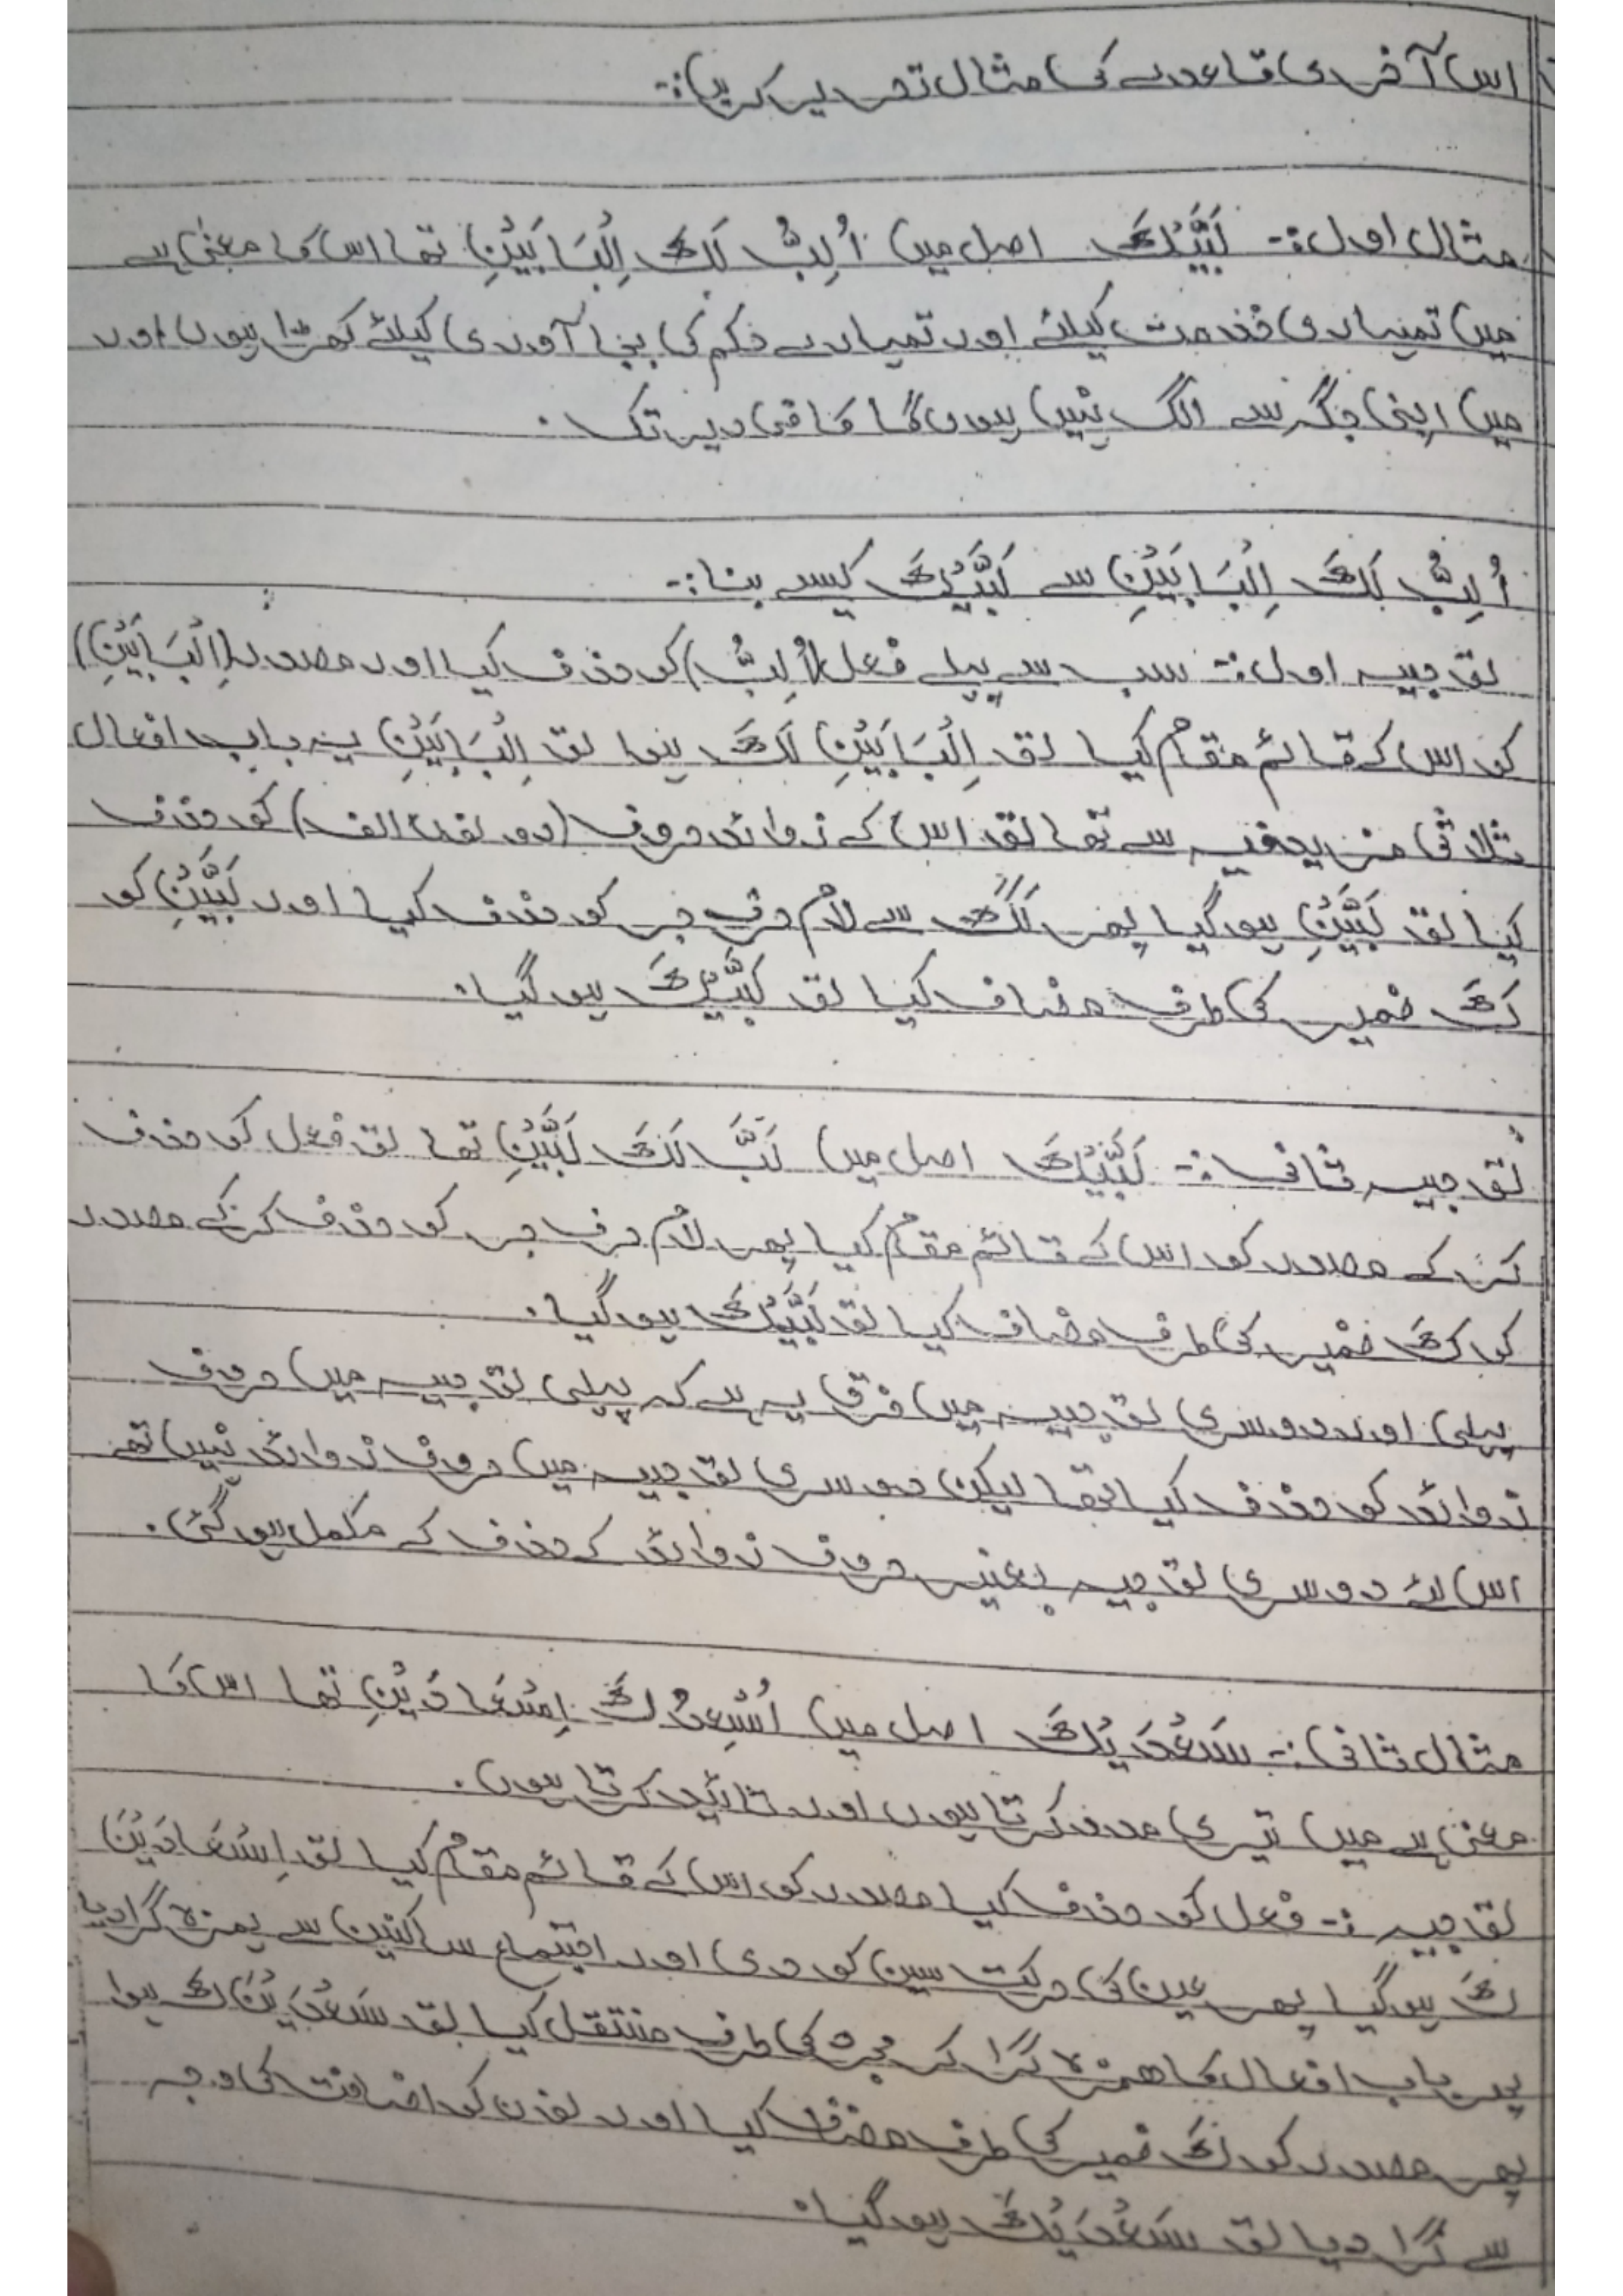 اس آخری قاعدے کی مثال تحریر کریں:-
مثال اول:- لَبَّیْکَ اصل میں اُلِبُّ لَکَ اِلْبَابَیْنِ تھا اس کا معنیٰ ہے
میں تمہاری خدمت کیلئے اور تمہارے حکم کی بجا آوری کیلئے کھڑا ہوں اور
میں اپنی جگہ سے الگ نہیں ہوں گا کافی دیر تک۔
اُلِبُّ لَکَ اِلْبَابَیْنِ سے لَبَّیْکَ کیسے بنا:-
توجیہ اول:- سب سے پہلے فعل (اُلِبُّ) کو حذف کیا اور مصدر (اِلْبَابَیْنِ)
کو اس کے قائم مقام کیا تو اِلْبَابَیْنِ لَکَ ہوا تو اِلْبَابَیْنِ یہ باب افعال
ثلاثی مزید فیہ سے تھا تو اس کے زوائد حروف (دونوں الف) کو حذف
کیا تو لَبَّیْنِ ہو گیا پھر لَکَ سے لام حرف جر کو حذف کیا اور لَبَّیْنِ کو
کَ ضمیر کی طرف مضاف کیا تو لَبَّیْکَ ہو گیا۔
توجیہ ثانی:- لَبَّیْکَ اصل میں لَبَّ لَکَ لَبَّیْنِ تھا تو فعل کو حذف
کر کے مصدر کو اس کے قائم مقام کیا پھر لام حرف جر کو حذف کر کے مصدر
کو کَ ضمیر کی طرف مضاف کیا تو لَبَّیْکَ ہو گیا۔
پہلی اور دوسری توجیہ میں فرق یہ ہے کہ پہلی توجیہ میں حروف
زوائد کو حذف کیا تھا لیکن دوسری توجیہ میں حروف زوائد نہیں تھے
اس لئے دوسری توجیہ بغیر حروف زوائد کے حذف کے مکمل ہو گئی۔
مثال ثانی:- سَعْدَیْکَ اصل میں اُسْعِدُکَ اِسْعَادَیْنِ تھا اس کا
معنیٰ ہے میں تیری مدد کرتا ہوں اور تائید کرتا ہوں۔
توجیہ:- فعل کو حذف کیا مصدر کو اس کے قائم مقام کیا تو اِسْعَادَیْنَ
کَ ہو گیا پھر عین کی حرکت سین کو دی اور اجتماع ساکنین سے ہمزہ گرا دیا
پھر باب افعال کا ھمزہ گرا کر مجرد کی طرف منتقل کیا تو سَعْدَیْنَ کَ ہوا
پھر مصدر کو کَ ضمیر کی طرف مضاف کیا اور نون کو اضافت کی وجہ
سے گرا دیا تو سَعْدَیْکَ ہو گیا۔